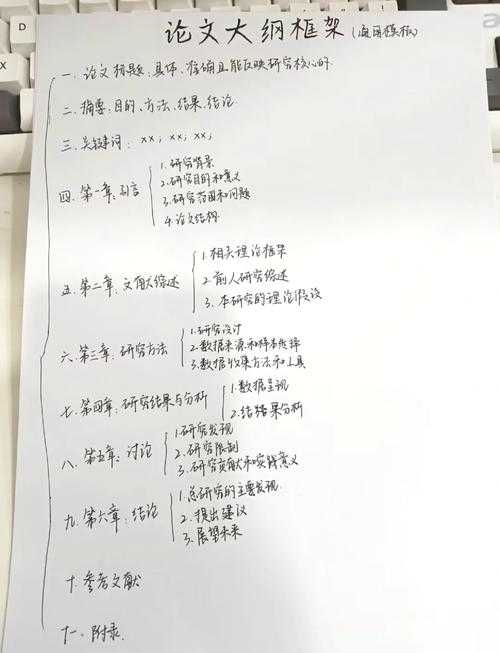 论文大纲框架(通用模板)
一、论文标题:具体、准确且能反映研究核心的.
二、摘要:目的、方法、结果、结论
三、关键词: xx; xx; xx;
四.第一章:引言
1.研究背景
2.研究目的和意义
3.研究范围和问题
4.论文结构
五.第二章:文献综述
1.相关理论框架
2.前人研究综述
3.本研究的理论假设
六.第三章:研究方法
1.研究设计
2.数据来源和样本选择
3.数据收集方法和工具
七.第四章:研究结果与分析
1.数据呈现
2.结果分析
八.第五章:讨论
1.研究发现
2.研究限制
3.研究贡献和实践意义
九.第六章:结论
1.总研究的主要发现.
2.提出建议
3.展望未来
十.参考文献
十一.附录.